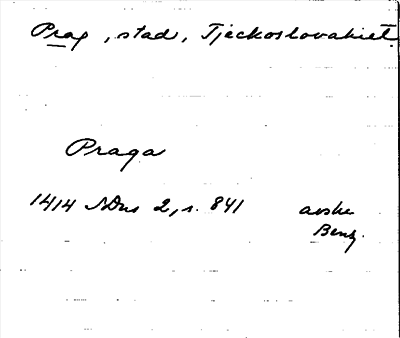 Prag, stad, Tjeckoslovakiet.
Praga
1414 SDns 2, s. 841 avskr.
Bentz.